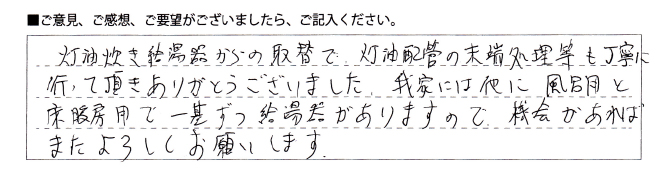 ■ご意見、ご感想、ご要望がございましたら、ご記入ください。
灯油炊き給湯器からの取替で、灯油配管の末端処理等も丁寧に
行って頂きありがとうございました。我家には他に風呂用と
床暖房用で一基ずつ給湯器がありますので、機会があれば
またよろしくお願いします。